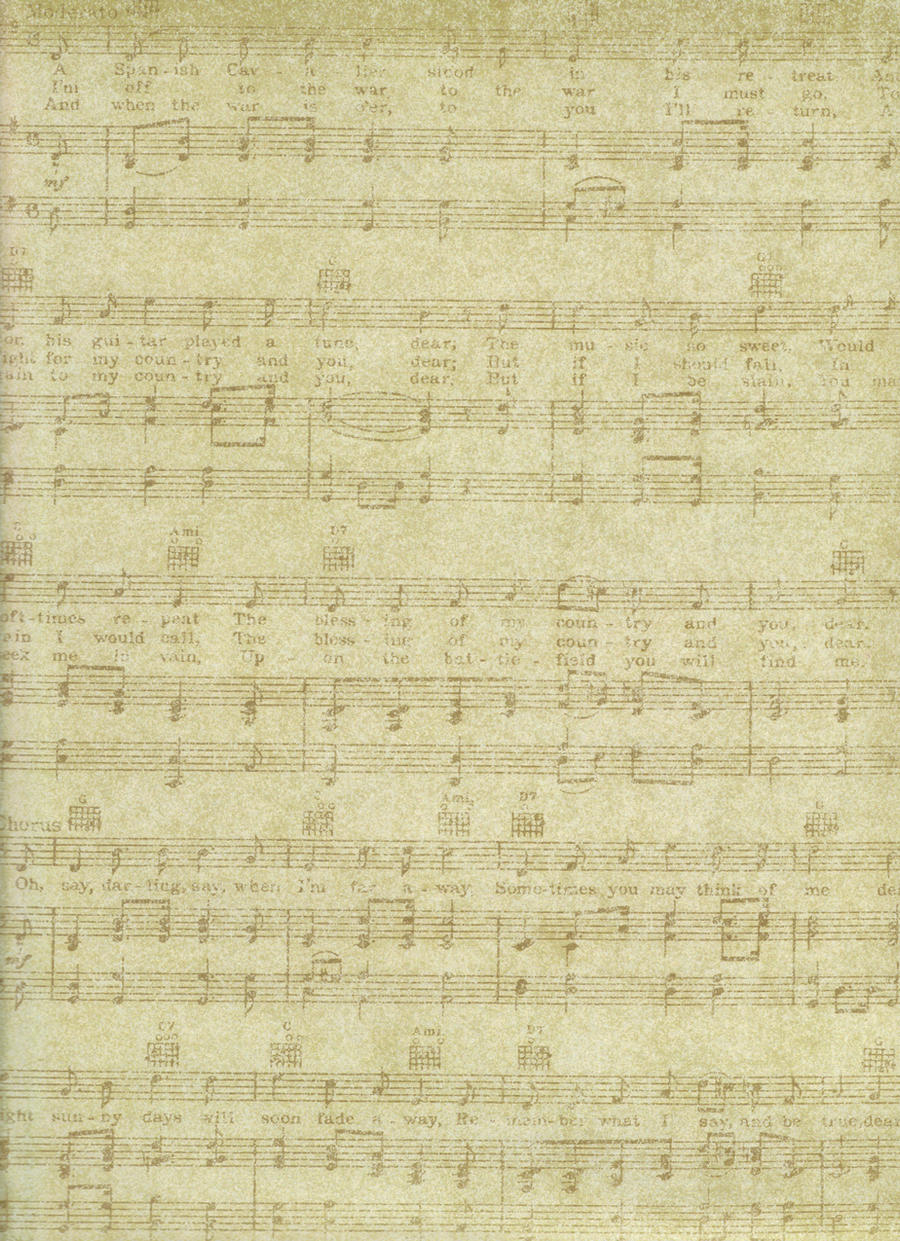 Moderato
A Span-ish Cav - a - lier stood in his re - treat And
I'm off to the war to the war I must go, To
And when the war is o'er, to you I'll re - turn, A
mf
D7 G G7
on his gui-tar played a tune, dear; The mu - sic so sweet, Would
ight for my coun-try and you, dear; But if I should fall, In
ain to my coun-try and you, dear, But if I be slain, You ma
C Ami D7 G
oft-times re - peat The bless - ing of my coun - try and you, dear.
ain I would call, The bless - ing of my coun - try and you, dear.
eek me in vain, Up - on the bat - tle - field you will find me.
G C Ami. D7 G
Chorus
Oh, say, dar-ling, say, when I'm far a - way, Some-times you may think of me de
mf
G7 C Ami D7 G
ight sun-ny days will soon fade a - way, Re - mem-ber what I say, and be true, dear